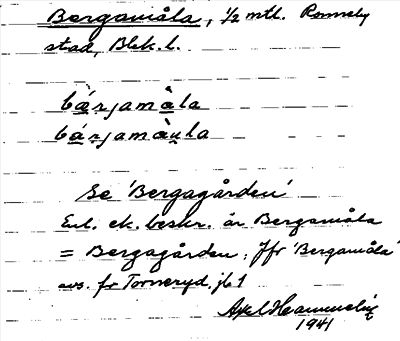 Bergamåla, 1/2 mtl. Ronneby
stad, Blek. l.
bærjamåla
bærjamàula
Se 'Bergagården'
Enl. ek. beskr. är Bergamåla
= Bergagården. Jfr 'Bergamåla'
avs. fr Torneryd jb 1
Axel
1941